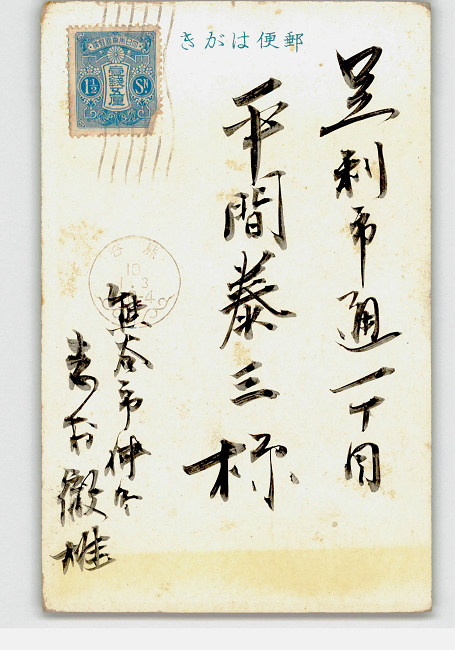 郵便はがき
足利市通一丁目
平間泰三様
熊谷市仲
徹雄
壹銭五厘
1½ Sn
熊谷
10